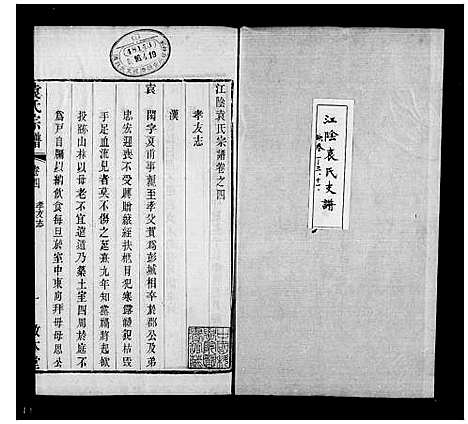 江陰袁氏支譜
江陰袁氏宗譜卷之四
孝友志
漢
袁閎字夏甫事親至孝父賀爲彭城相卒於郡公及弟
忠宏迎喪不受賻贈縗絰扶柩冒犯寒露體貌枯毁
手足血流見者莫不傷之延熹九年知黨禍將起欲
投跡山林以母老不宜遠遁乃築土室四周於庭
爲戶自牖以納飲食每旦於室中東向拜母母思公
袁氏宗譜
卷四
孝友志
一